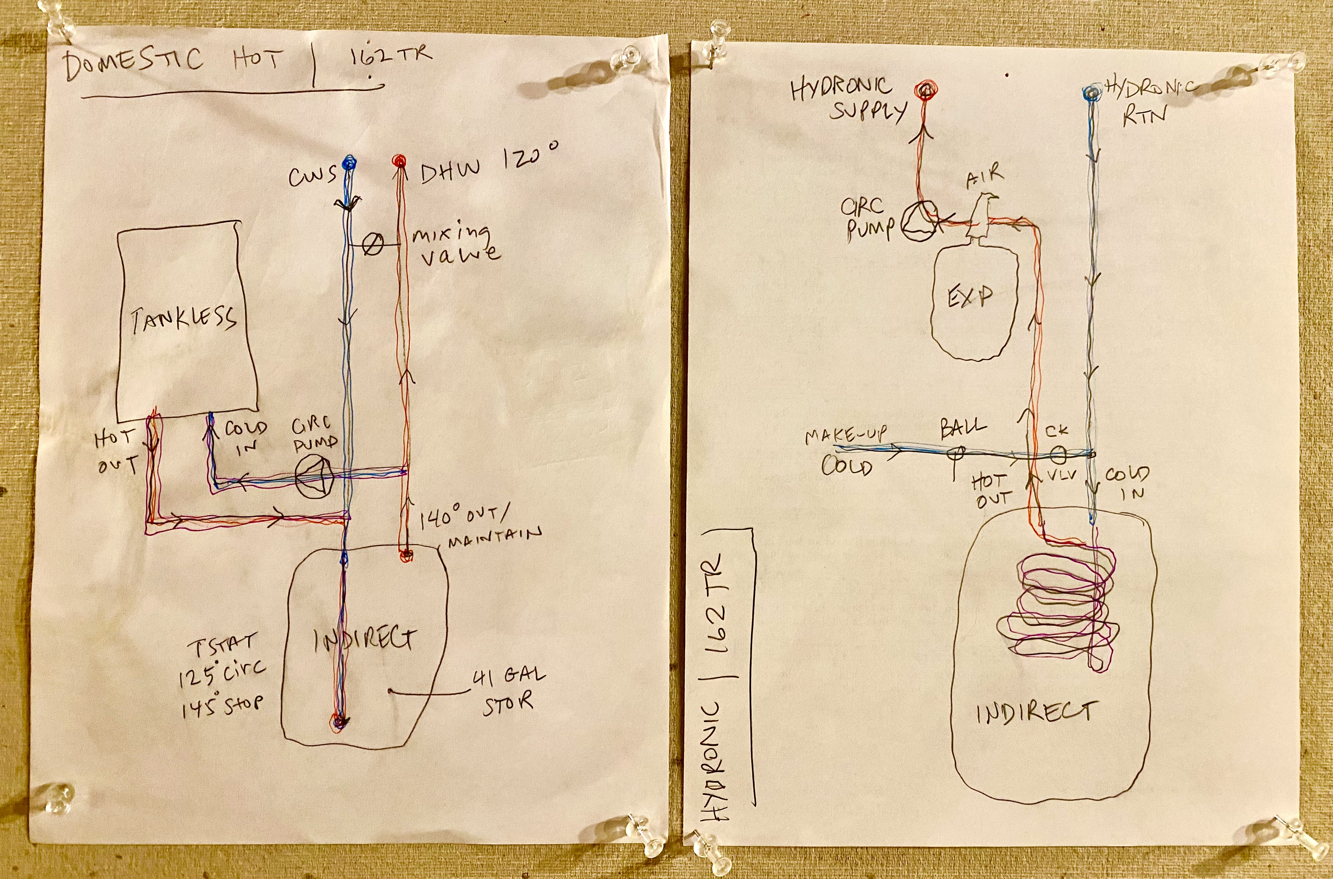 DOMESTIC HOT | 162 TR
CWS
DHW 120°
mixing
valve
TANKLESS
HOT
OUT
COLD
IN
CIRC
PUMP
140° OUT/
MAINTAIN
INDIRECT
TSTAT
125° circ
145° STOP
41 GAL
STOR
HYDRONIC
SUPPLY
HYDRONIC
RTN
AIR
CIRC
PUMP
EXP
MAKE-UP
COLD
BALL
CK
VLV
HOT
OUT
COLD
IN
INDIRECT
HYDRONIC | 162 TR